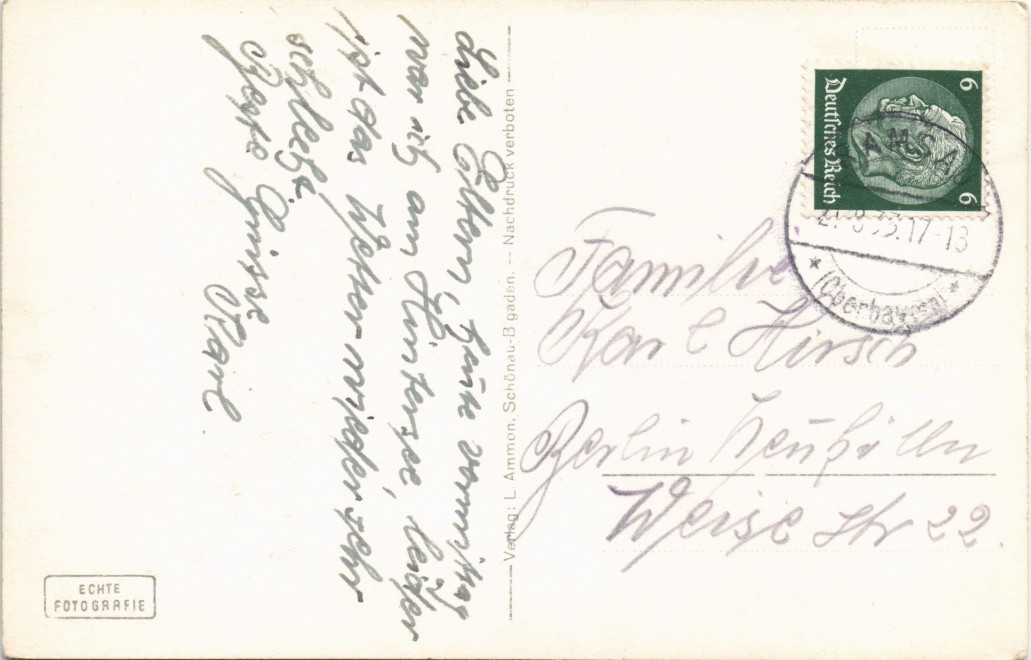 Liebe Eltern, heute vormittag
war ich am Hintersee, leider
ist das Wetter wieder sehr
schlecht.
Beste Grüsse
Karl
Verlag: L. Ammon, Schönau-B'gaden. -- Nachdruck verboten
ECHTE
FOTOGRAFIE
6 6
Deutsches Reich
RAMSAU
17-18
* (Oberbayern) *
Familie
Karl Hirsch
Berlin Neukölln
Weise str 22.